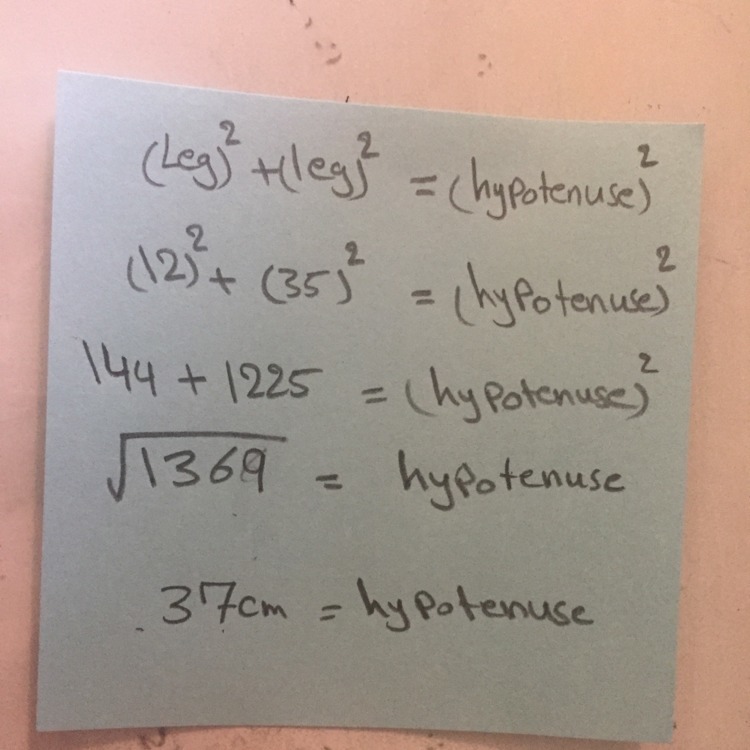 (Leg)² + (leg)² = (hypotenuse)²
(12)² + (35)² = (hypotenuse)²
144 + 1225 = (hypotenuse)²
√1369 = hypotenuse
37cm = hypotenuse